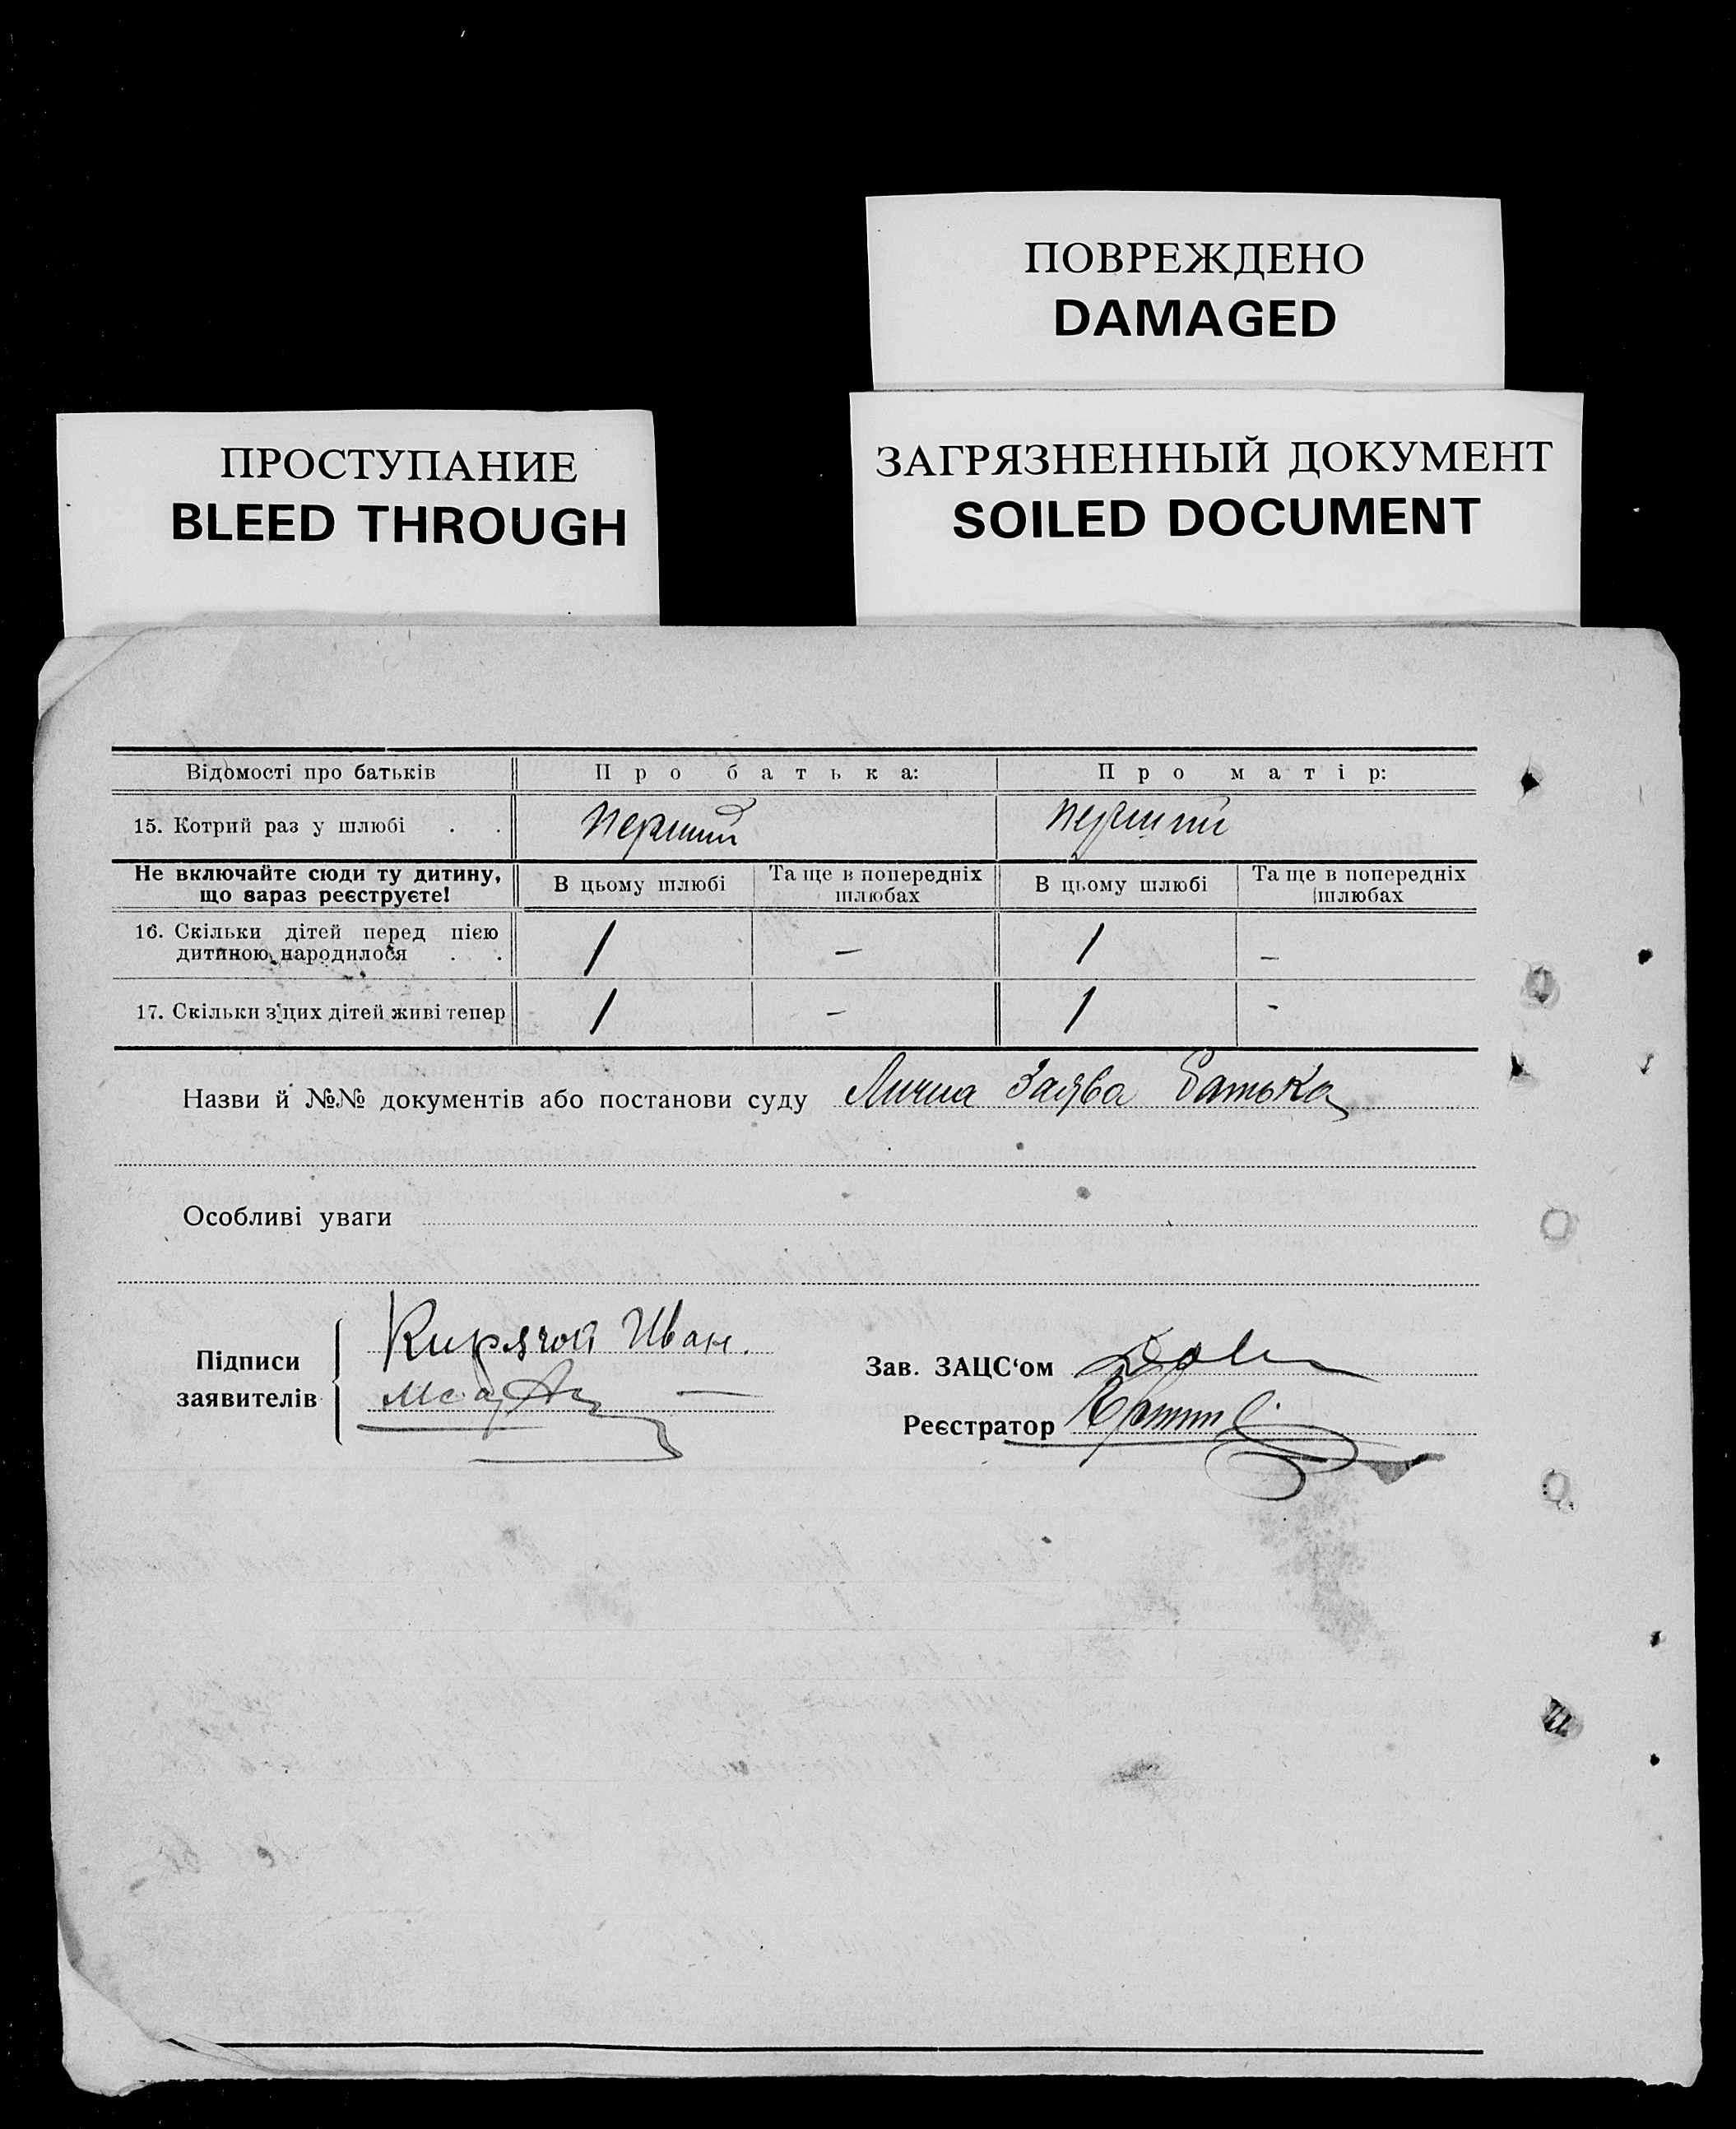 ПОВРЕЖДЕНО
DAMAGED
ПРОСТУПАНИЕ
BLEED THROUGH
ЗАГРЯЗНЕННЫЙ ДОКУМЕНТ
SOILED DOCUMENT
Відомості про батьків Про батька: Про матір:
15. Котрий раз у шлюбі . . перший перший
Не включайте сюди ту дитину, що зараз реєструєте! В цьому шлюбі Та ще в попередніх шлюбах В цьому шлюбі Та ще в попередніх шлюбах
16. Скільки дітей перед цією дитиною народилося . . 1 – 1 –
17. Скільки з цих дітей живі тепер 1 – 1 -
Назви й №№ документів або постанови суду Лична Заява Батька
Особливі уваги
Підписи заявителів
Иван.
Зав. ЗАЦС'ом
Реєстратор